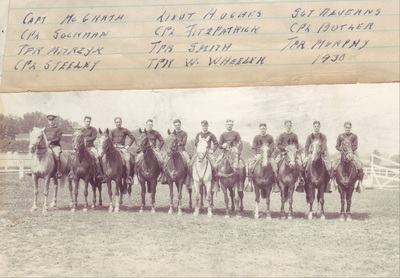 Capt McGrath Lieut Hughes Sgt Nevenns
Cpl Sockman Cpl Fitzpatrick Cpl Butler
Tpr Murzyk Tpr Smith Tpr Murphy
Cpl Steeley Tpr W. Wheeler 1930